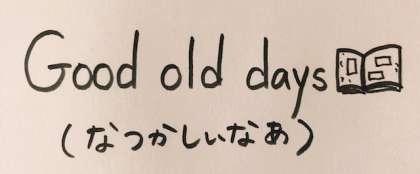 Good old days
(なつかしいなあ)